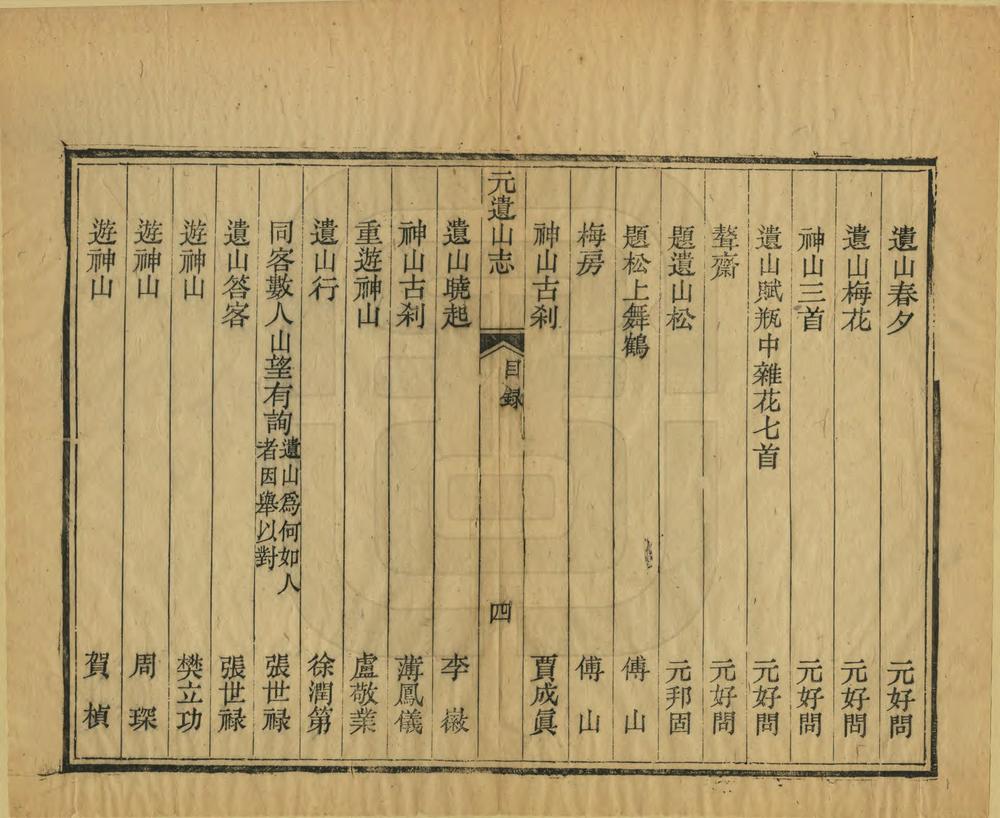 遺山春夕 元好問
遺山梅花 元好問
神山三首 元好問
遺山賦瓶中雜花七首 元好問
聱齋 元好問
題遺山松 元邦固
題松上舞鶴 傅山
梅房 傅山
神山古刹 賈成眞
元遺山志 目録 四
遺山曉起 李嶶
神山古刹 薄鳳儀
重遊神山 盧敬業
遺山行 徐潤第
同客數人山望有詢遺山爲何如人者因舉以對 張世禄
遺山答客 張世禄
遊神山 樊立功
遊神山 周琛
遊神山 賀楨